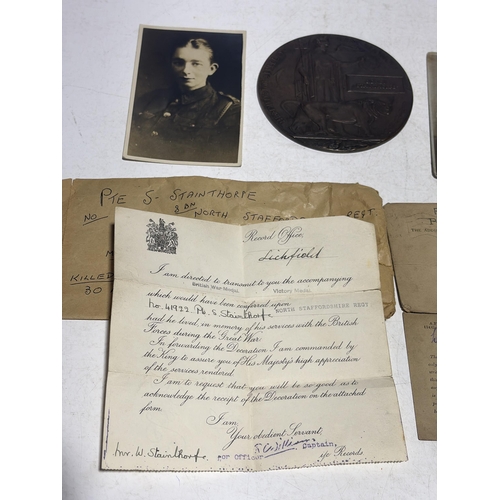 PTE S. STAINTHORPE
NO 8 BN NORTH STAFF REGT
KILLED
30
Record Office,
Lichfield
I am directed to transmit to you the accompanying
British War Medal Victory Medal
which would have been conferred upon
No. 41922 Pte. S. Stainthorpe NORTH STAFFORDSHIRE REGT
had he lived, in memory of his services with the British
Forces during the Great War.
In forwarding the Decoration I am commanded by
the King to assure you of His Majesty's high appreciation
of the services rendered.
I am to request that you will be so good as to
acknowledge the receipt of the Decoration on the attached
form.
I am,
Your obedient Servant,
Captain,
Mr. W. Stainthorpe. For Officer i/c Records